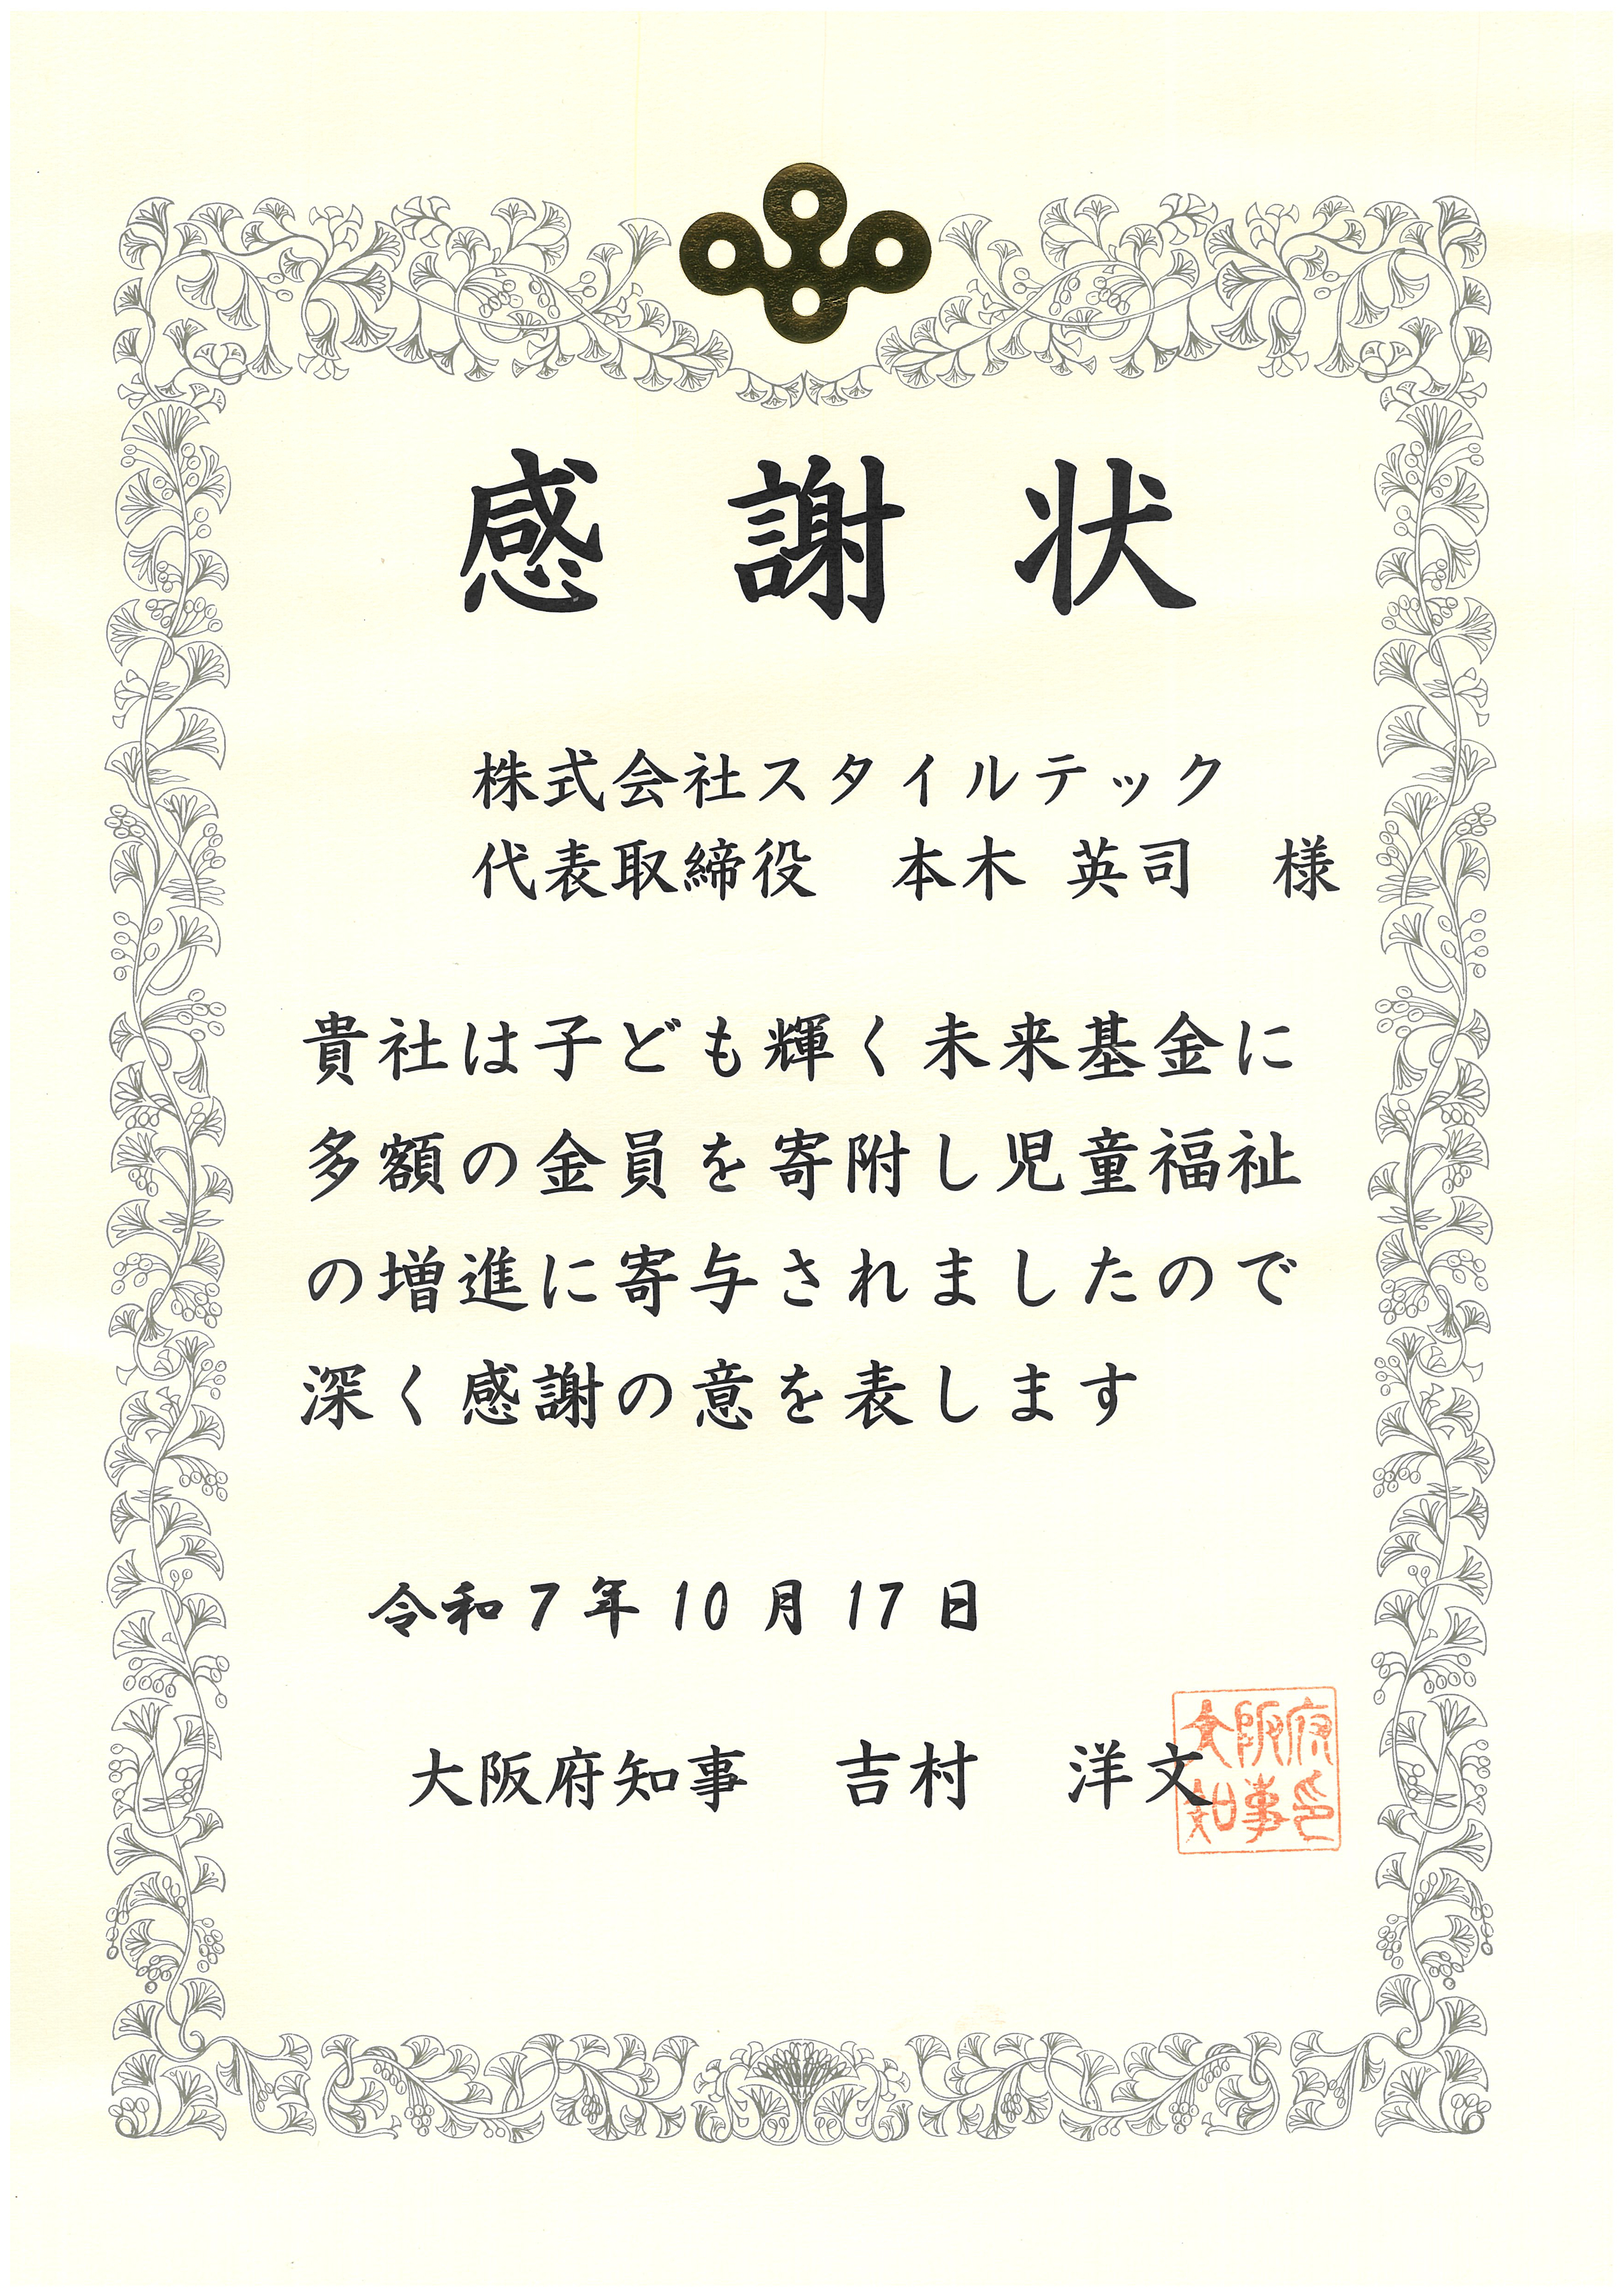 感謝状
株式会社スタイルテック
代表取締役　本木 英司　様
貴社は子ども輝く未来基金に
多額の金員を寄附し児童福祉
の増進に寄与されましたので
深く感謝の意を表します
令和7年10月17日
大阪府知事　吉村　洋文
大阪府
知事印